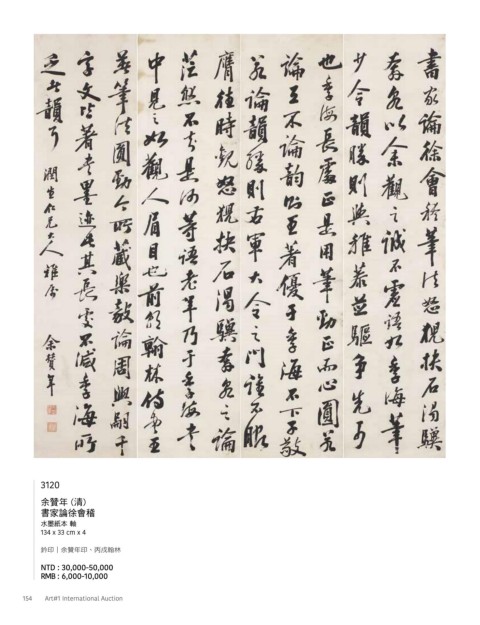 書家論徐會稽筆法怒猊抉石渴驥
奔泉以余觀之誠不虛語如季海筆
少令韻勝則與稚恭並驅爭先可
也季海長處正是用筆勁正而心圓若
論工不論韻則王著優于季海不下子敬
若論韻勝則右軍大令之門誰不服
膺往時觀怒猊抉石渴驥奔泉之論
茫然不知是何等語老年乃于季海書
中見之如觀人眉目也前朝翰林侍書王
著筆法圓勁今所藏樂毅論周興嗣千
字文皆著書墨迹此其長處不減季海所
乏者韻耳
潤生仁兄大人雅屬
余贊年
3120
余贊年 (清)
書家論徐會稽
水墨紙本 軸
134 x 33 cm x 4
鈐印｜余贊年印、丙戌翰林
NTD : 30,000-50,000
RMB : 6,000-10,000
154 Art#1 International Auction